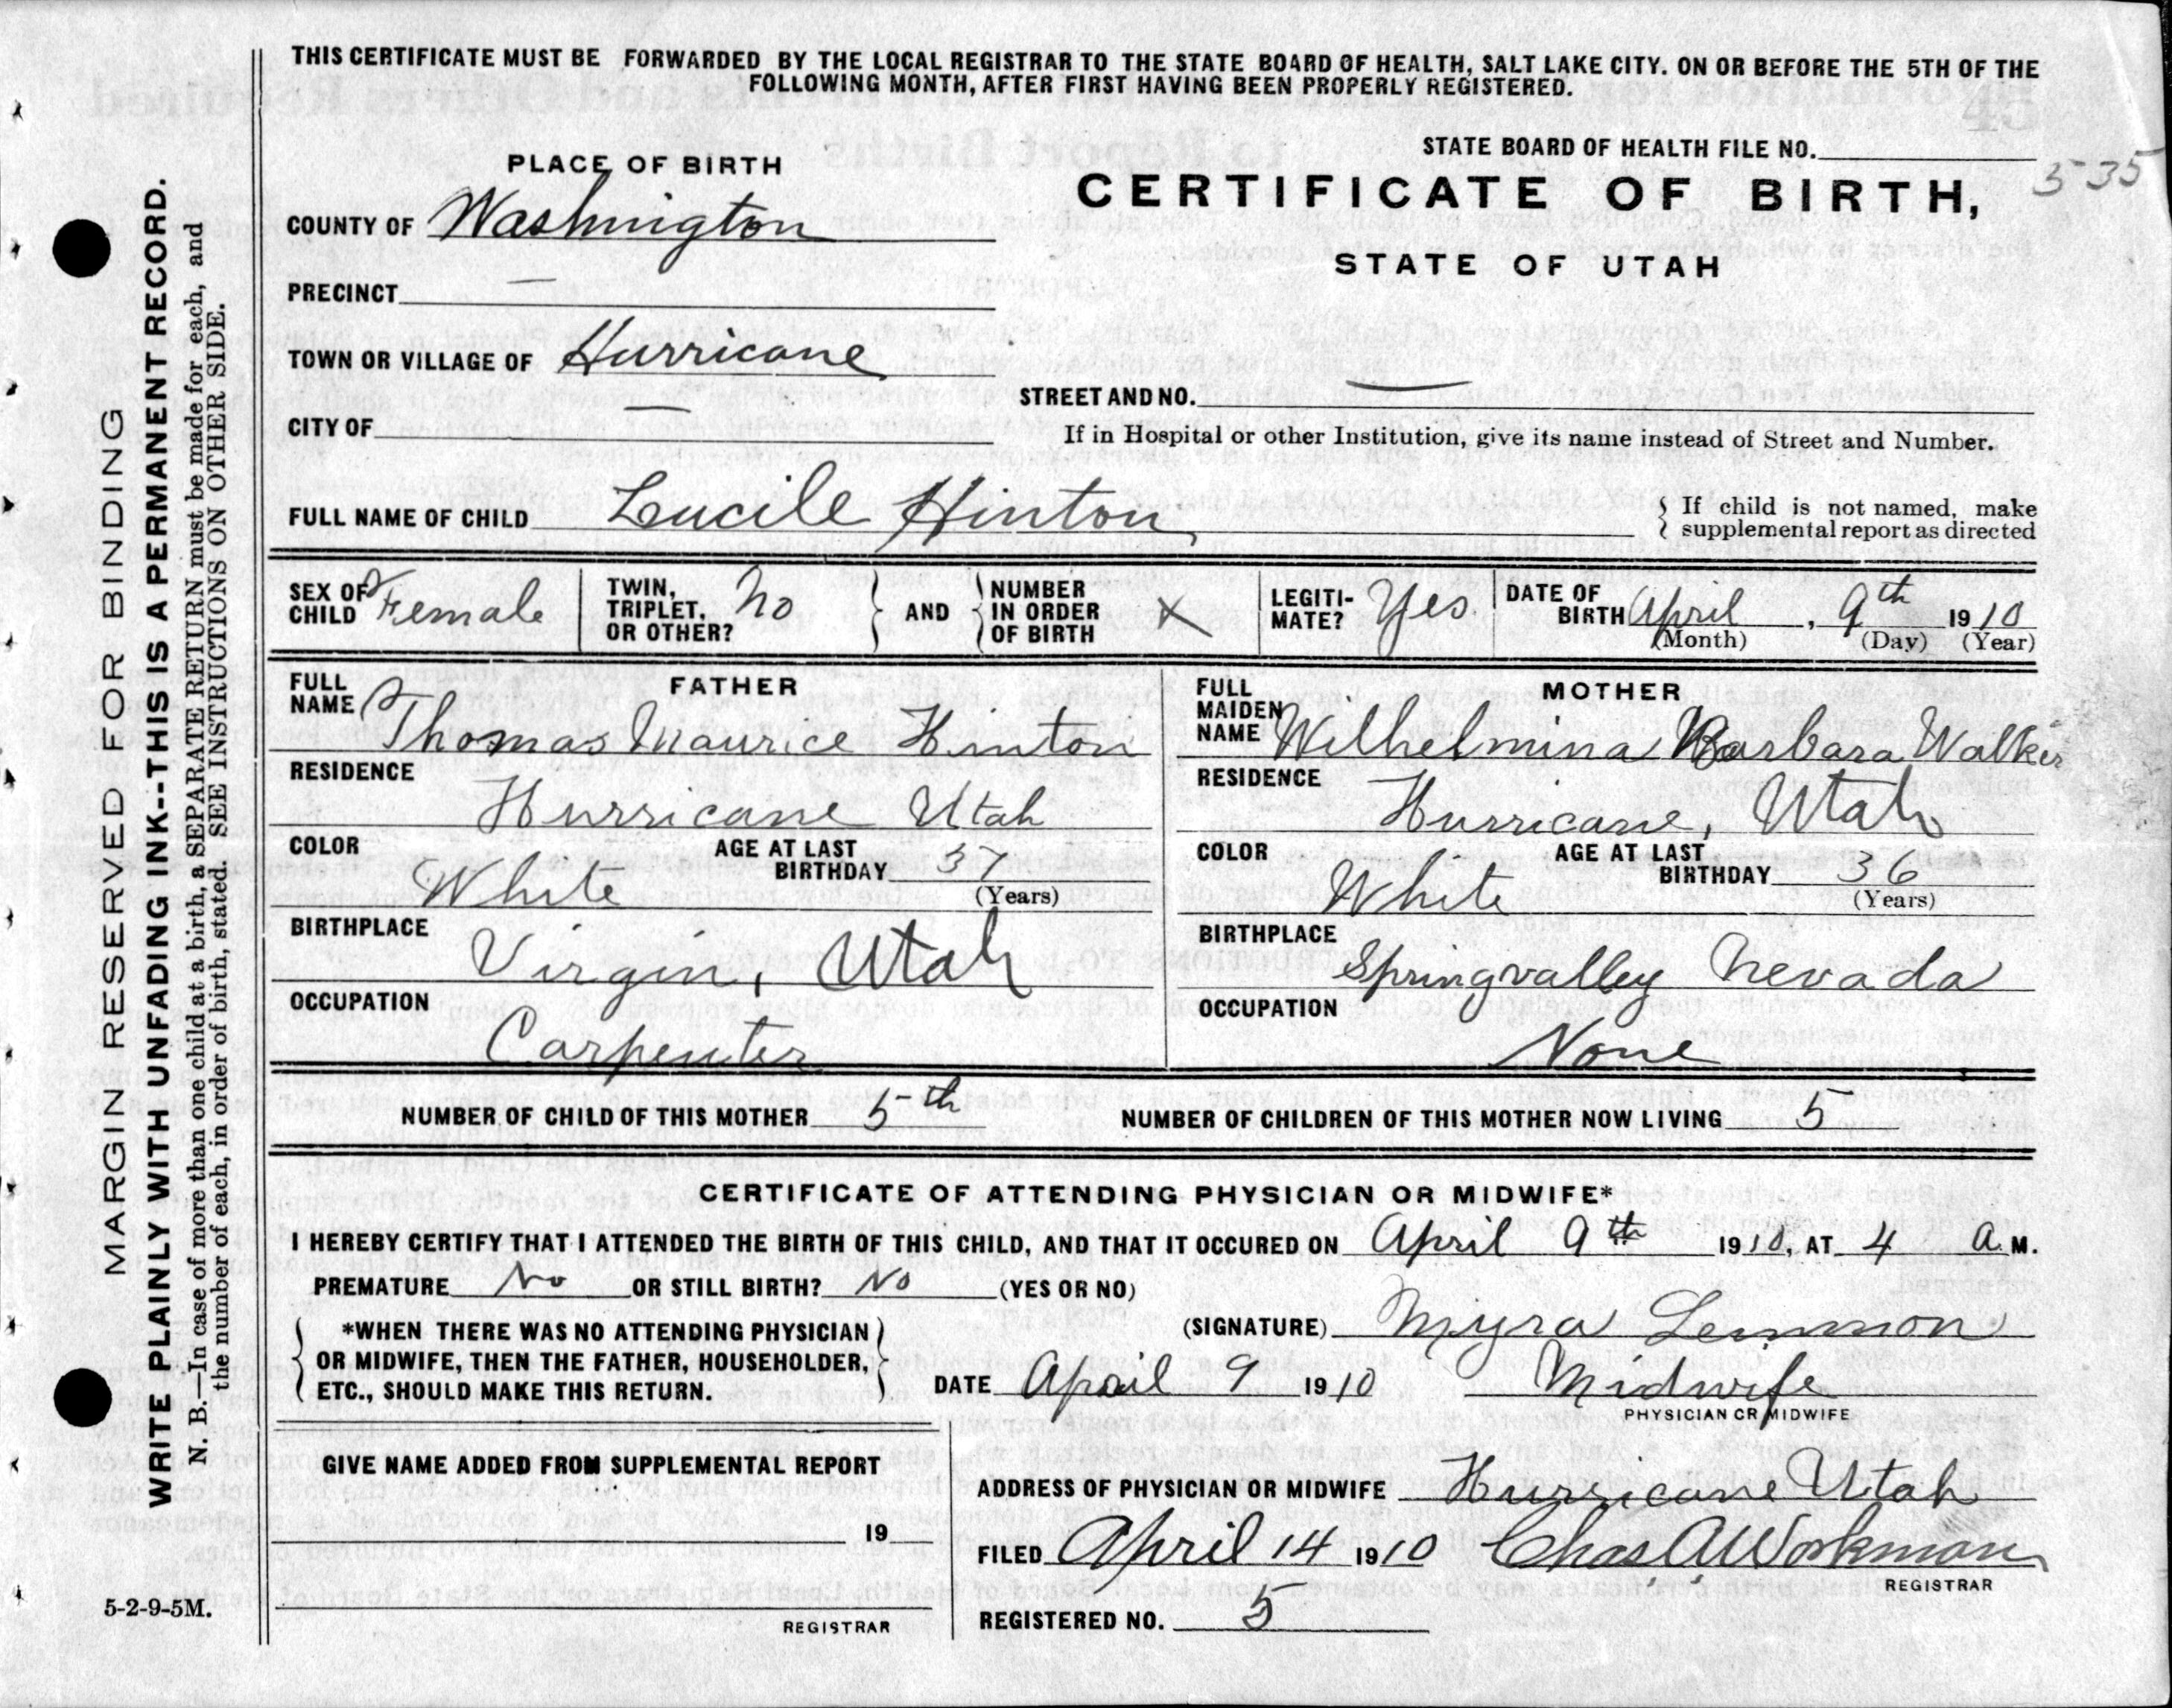 THIS CERTIFICATE MUST BE FORWARDED BY THE LOCAL REGISTRAR TO THE STATE BOARD OF HEALTH, SALT LAKE CITY. ON OR BEFORE THE 5TH OF THE
FOLLOWING MONTH, AFTER FIRST HAVING BEEN PROPERLY REGISTERED.
STATE BOARD OF HEALTH FILE NO.
535
PLACE OF BIRTH
CERTIFICATE OF BIRTH,
STATE OF UTAH
COUNTY OF Washington
PRECINCT —
TOWN OR VILLAGE OF Hurricane
STREET AND NO. —
CITY OF —
If in Hospital or other Institution, give its name instead of Street and Number.
FULL NAME OF CHILD Lucile Hinton
{ If child is not named, make
supplemental report as directed
SEX OF CHILD Female
TWIN, TRIPLET, OR OTHER? No } AND { NUMBER IN ORDER OF BIRTH X
LEGITI-MATE? Yes
DATE OF BIRTH April, 9th 1910
(Month) (Day) (Year)
FATHER
FULL NAME Thomas Maurice Hinton
RESIDENCE
Hurricane Utah
COLOR White AGE AT LAST BIRTHDAY 37
(Years)
BIRTHPLACE
Virgin, Utah
OCCUPATION
Carpenter
MOTHER
FULL MAIDEN NAME Wilhelmina Barbara Walker
RESIDENCE
Hurricane, Utah
COLOR White AGE AT LAST BIRTHDAY 36
(Years)
BIRTHPLACE
Springvalley Nevada
OCCUPATION
None
NUMBER OF CHILD OF THIS MOTHER 5th NUMBER OF CHILDREN OF THIS MOTHER NOW LIVING 5
CERTIFICATE OF ATTENDING PHYSICIAN OR MIDWIFE*
I HEREBY CERTIFY THAT I ATTENDED THE BIRTH OF THIS CHILD, AND THAT IT OCCURED ON April 9th 1910, AT 4 a. M.
PREMATURE No OR STILL BIRTH? No (YES OR NO)
{ *WHEN THERE WAS NO ATTENDING PHYSICIAN
OR MIDWIFE, THEN THE FATHER, HOUSEHOLDER,
ETC., SHOULD MAKE THIS RETURN. }
(SIGNATURE) Myra Lemmon
DATE April 9 1910 Midwife
PHYSICIAN OR MIDWIFE
GIVE NAME ADDED FROM SUPPLEMENTAL REPORT
19
REGISTRAR
ADDRESS OF PHYSICIAN OR MIDWIFE Hurricane Utah
FILED April 14 1910 Chas. A. Workman
REGISTRAR
REGISTERED NO. 5
MARGIN RESERVED FOR BINDING
WRITE PLAINLY WITH UNFADING INK--THIS IS A PERMANENT RECORD.
N. B.—In case of more than one child at a birth, a SEPARATE RETURN must be made for each, and
the number of each, in order of birth, stated. SEE INSTRUCTIONS ON OTHER SIDE.
5-2-9-5M.